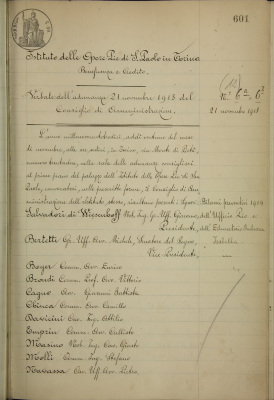 601
Istituto delle Opere Pie di S. Paolo in Torino
Beneficenza e Credito.
Verbale dell'adunanza 21 novembre 1913 del
Consiglio di Amministrazione.
N.° 6°
21 novembre 1913
L'anno millenovecentotredici, addì ventuno del mese
di novembre, alle ore sedici, in Torino, via Monte di Pietà,
numero trentadue, nella sala delle adunanze consigliari
al piano primo del palazzo dell'Istituto delle Opere Pie di San
Paolo, convocatosi, nelle prescritte forme, il Consiglio di Am-
ministrazione dell'Istituto stesso, risultano presenti i Signori:
Salvadori di Wiesenhoff Nob. Ing. Gr. Uff. Giacomo,
Presidente,
Bertetti Gr. Uff. Avv. Michele, Senatore del Regno,
Vice Presidente,
Boyer Comm. Avv. Enrico
Brondi Comm. Prof. Vittorio
Cagno Avv. Giovanni Battista
Chiesa Comm. Avv. Camillo
Davicini Cav. Ing. Attilio
Emprin Comm. Avv. Callisto
Masino Nob. Ing. Cav. Giusto
Molli Comm. Ing. Stefano
Navassa Cav. Uff. Avv. Pietro